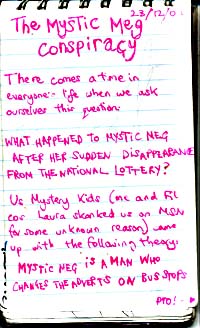 23/12/0
The Mystic Meg
Conspiracy
There comes a time in
everyone's life when we ask
ourselves this question:
WHAT HAPPENED TO MYSTIC MEG
AFTER HER SUDDEN DISAPPEARANCE
FROM THE NATIONAL LOTTERY?
Us Mystery Kids (me and Fil
cos Laura skanked us on MSN
for some unknown reason) came
up with the following theory:
MYSTIC MEG IS A MAN WHO
CHANGES THE ADVERTS ON BUS STOPS
PTO!